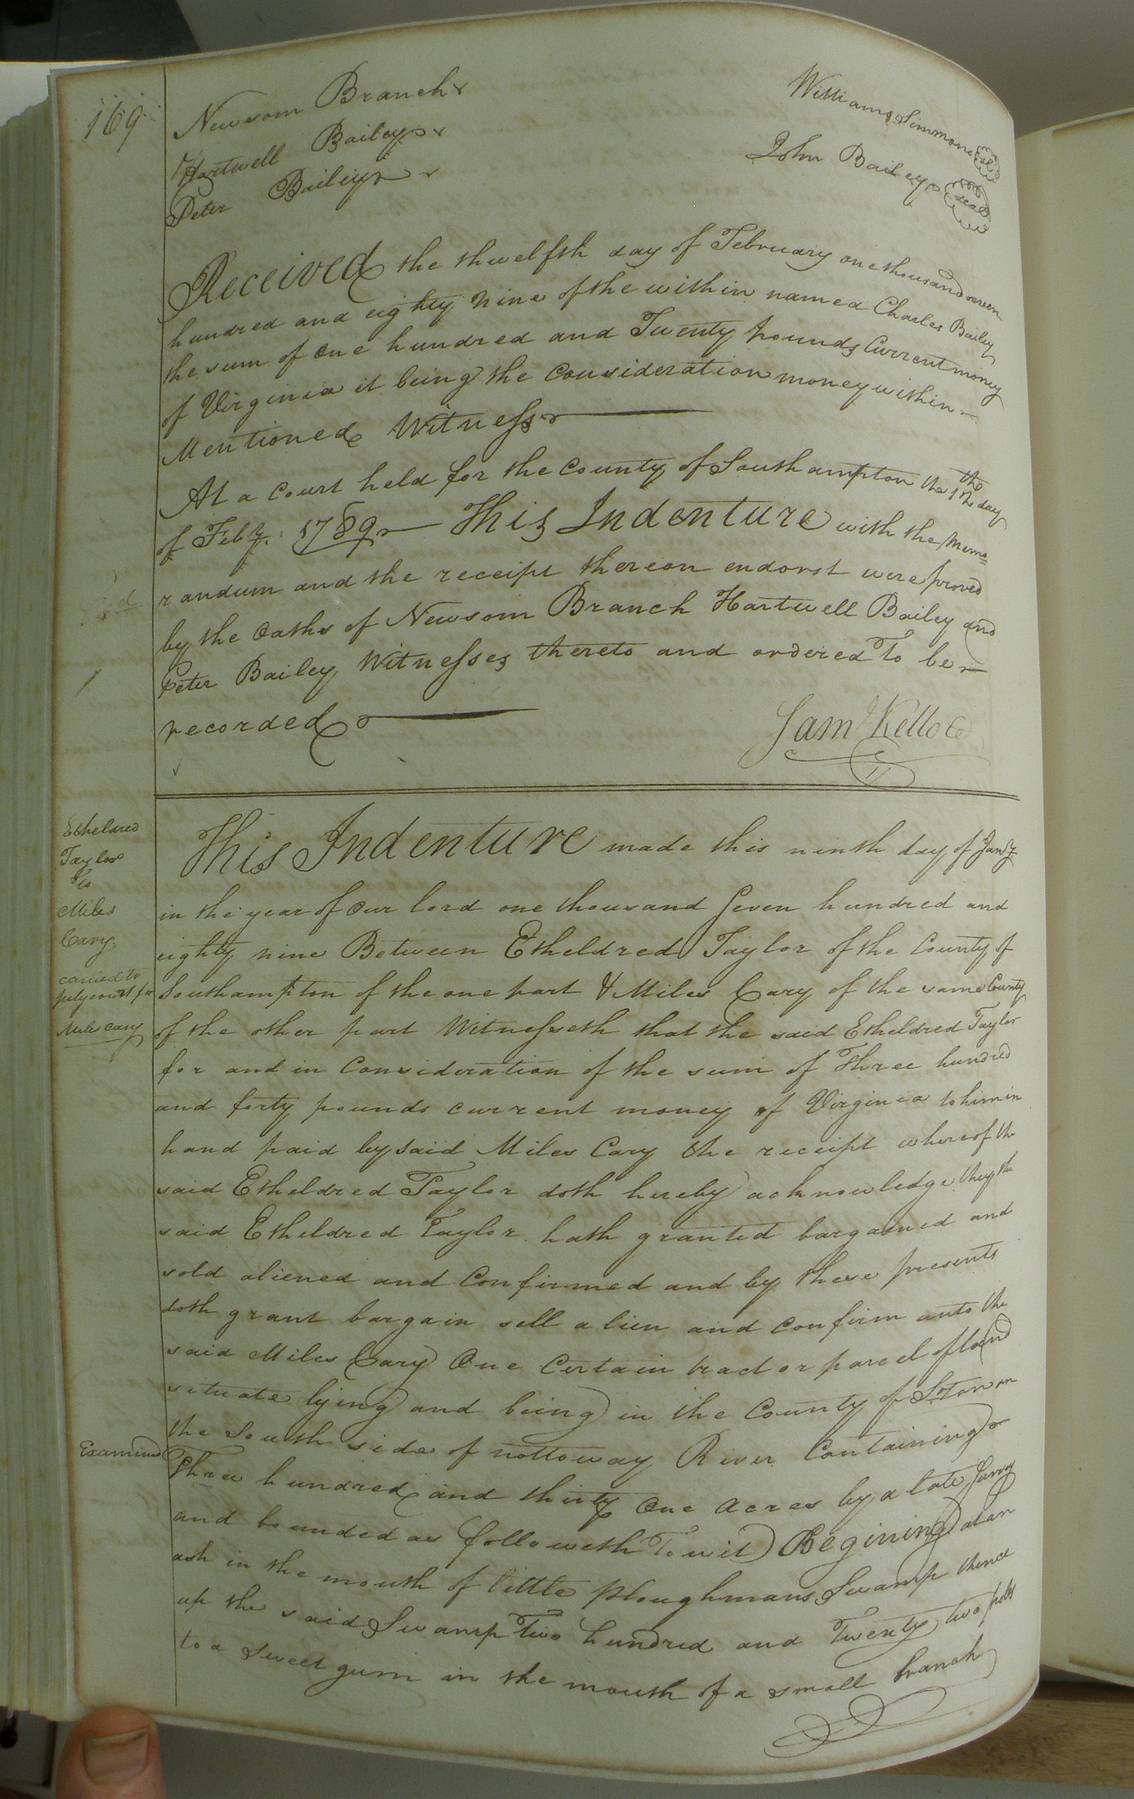 169
Newsom Branch
Hartwell Bailey
Peter Bailey
Williams Simmons seal
John Bailey seal
Received the thwelfth day of February one thousand seven
hundred and eighty Nine of the within named Charles Bailey
the sum of one hundred and Twenty pounds Current money
of Virginia it being the Consideration money within
Mentioned Witness
At a Court held for the County of Southampton the 12th day
of Feby. 1789 This Indenture with the Memo
randum and the receipt thereon endorst were proved
by the oaths of Newsom Branch Hartwell Bailey and
Peter Bailey Witnesses thereto and ordered To be
recorded
Saml Kello C
Etheldred
Taylor
to
Miles
Cary
carried to
july court for
Miles Cary
This Indenture made this ninth day of Jany
in the year of our lord one thousand Seven hundred and
eighty nine Between Etheldred Taylor of the County of
Southampton of the one part & Miles Cary of the same County
of the other part Witnesseth that the said Etheldred Taylor
for and in Consideration of the sum of Three hundred
and forty pounds current money of Virginia to him in
hand paid by said Miles Cary the receipt whereof the
said Etheldred Taylor doth hereby acknowledge they the
said Etheldred Taylor hath granted bargained and
sold aliened and Confirmed and by these presents
doth grant bargain sell alien and confirm unto the
said Miles Cary One Certain tract or parcel of land
situate lying and being in the County of S.ton on
the South side of nottoway River Containing
Examined
Three hundred and thirty One Acres by a late Survey
and bounded as followeth To wit) Begining at an
ash in the mouth of little Ploughmans Swamp thence
up the said Swamp Two hundred and Twenty two poles
to a Sweet gum in the mouth of a small branch